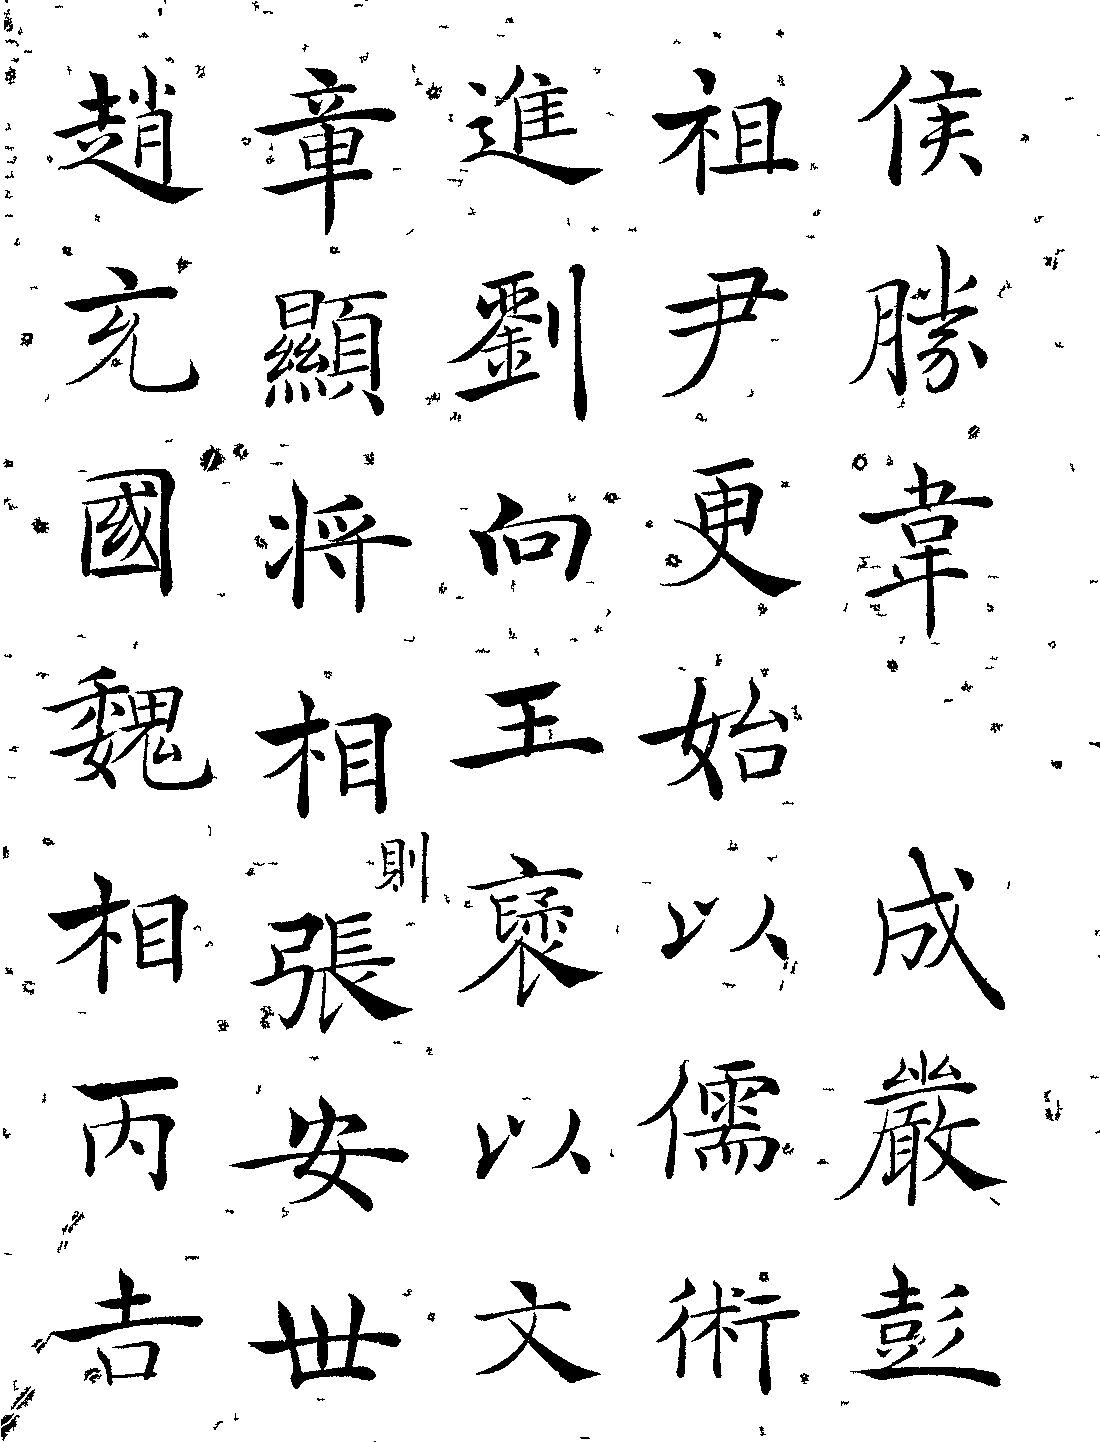 侯勝韋成嚴彭
祖尹更始以儒術
進劉向王襃以文
章顯將相則張安世
趙充國魏相丙吉